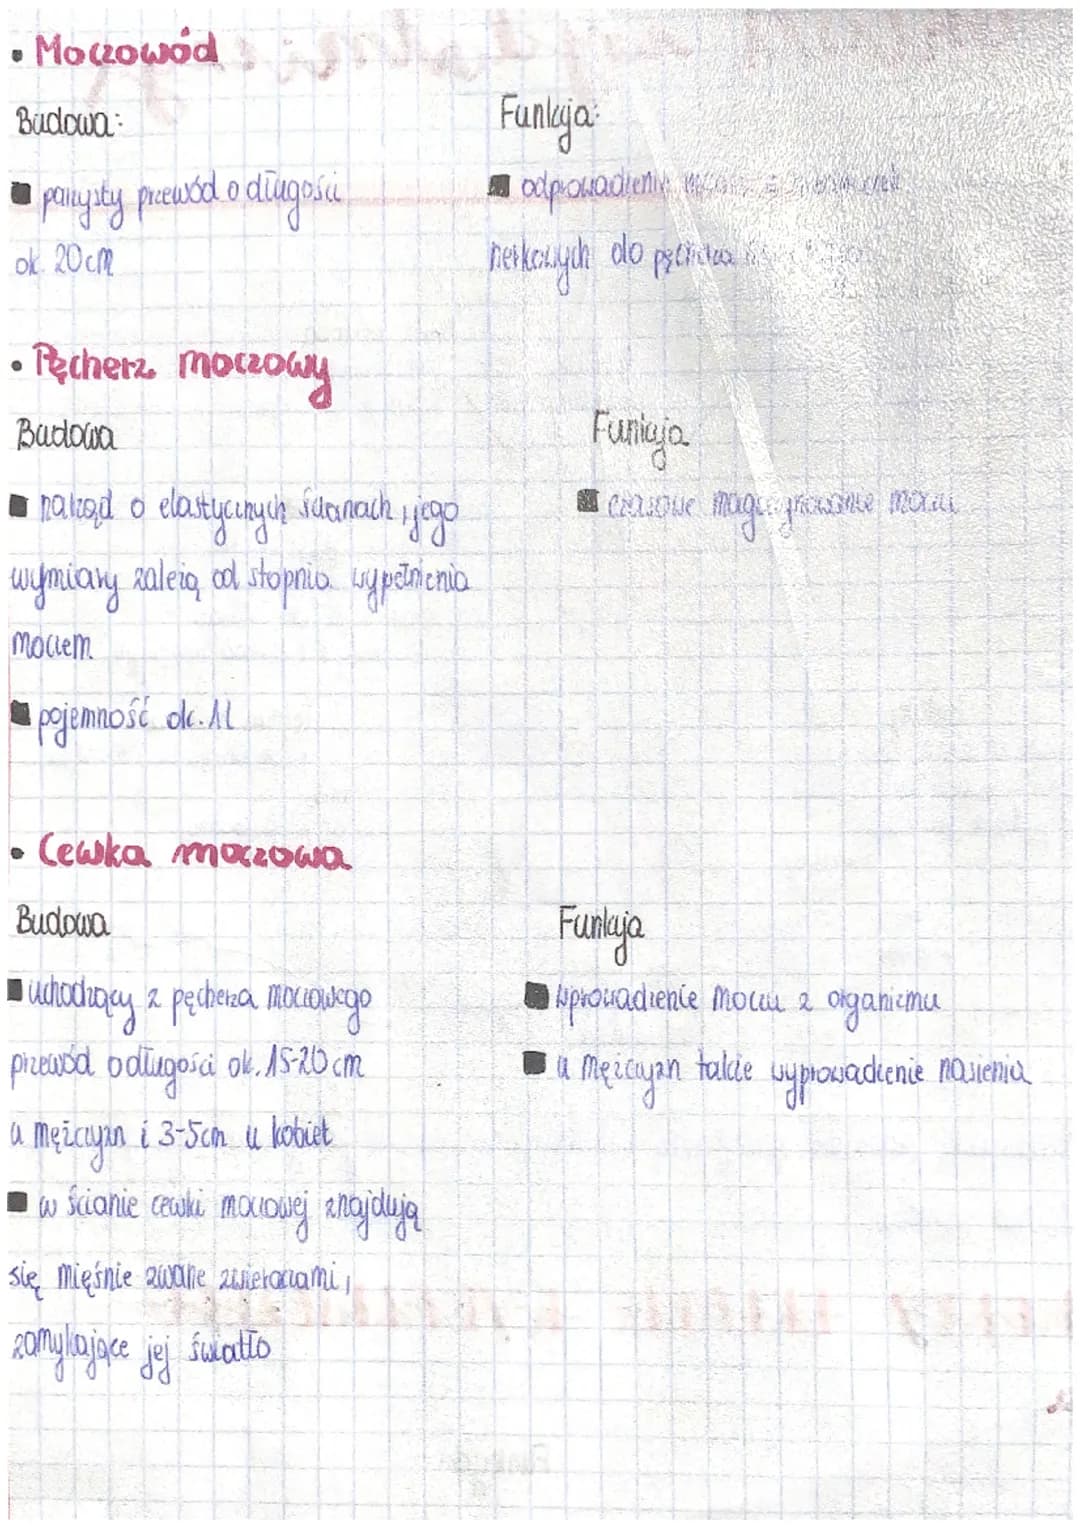 • Moczowód
Budowa:
■ parzysty przewód o długości
ok. 20cm
Funkcja:
■ odprowadzenie moczu z
nerkowych do pęcherza
• Pęcherz moczowy
Budowa
■ narząd o elastycznych ścianach, jego
wymiary zależą od stopnia wypełnienia
moczem
■ pojemność ok. 1l
Funkcja
■ czasowe magazynowanie moczu
• Cewka moczowa
Budowa
■ uchodzący z pęcherza moczowego
przewód o długości ok. 15-20 cm
u mężczyzn i 3-5cm u kobiet
■ w ścianie cewki moczowej znajdują
się mięśnie zwane zwieraczami,
zamykające jej światło
Funkcja
■ wprowadzenie moczu z organizmu
■ u mężczyzn także wyprowadzenie nasienia